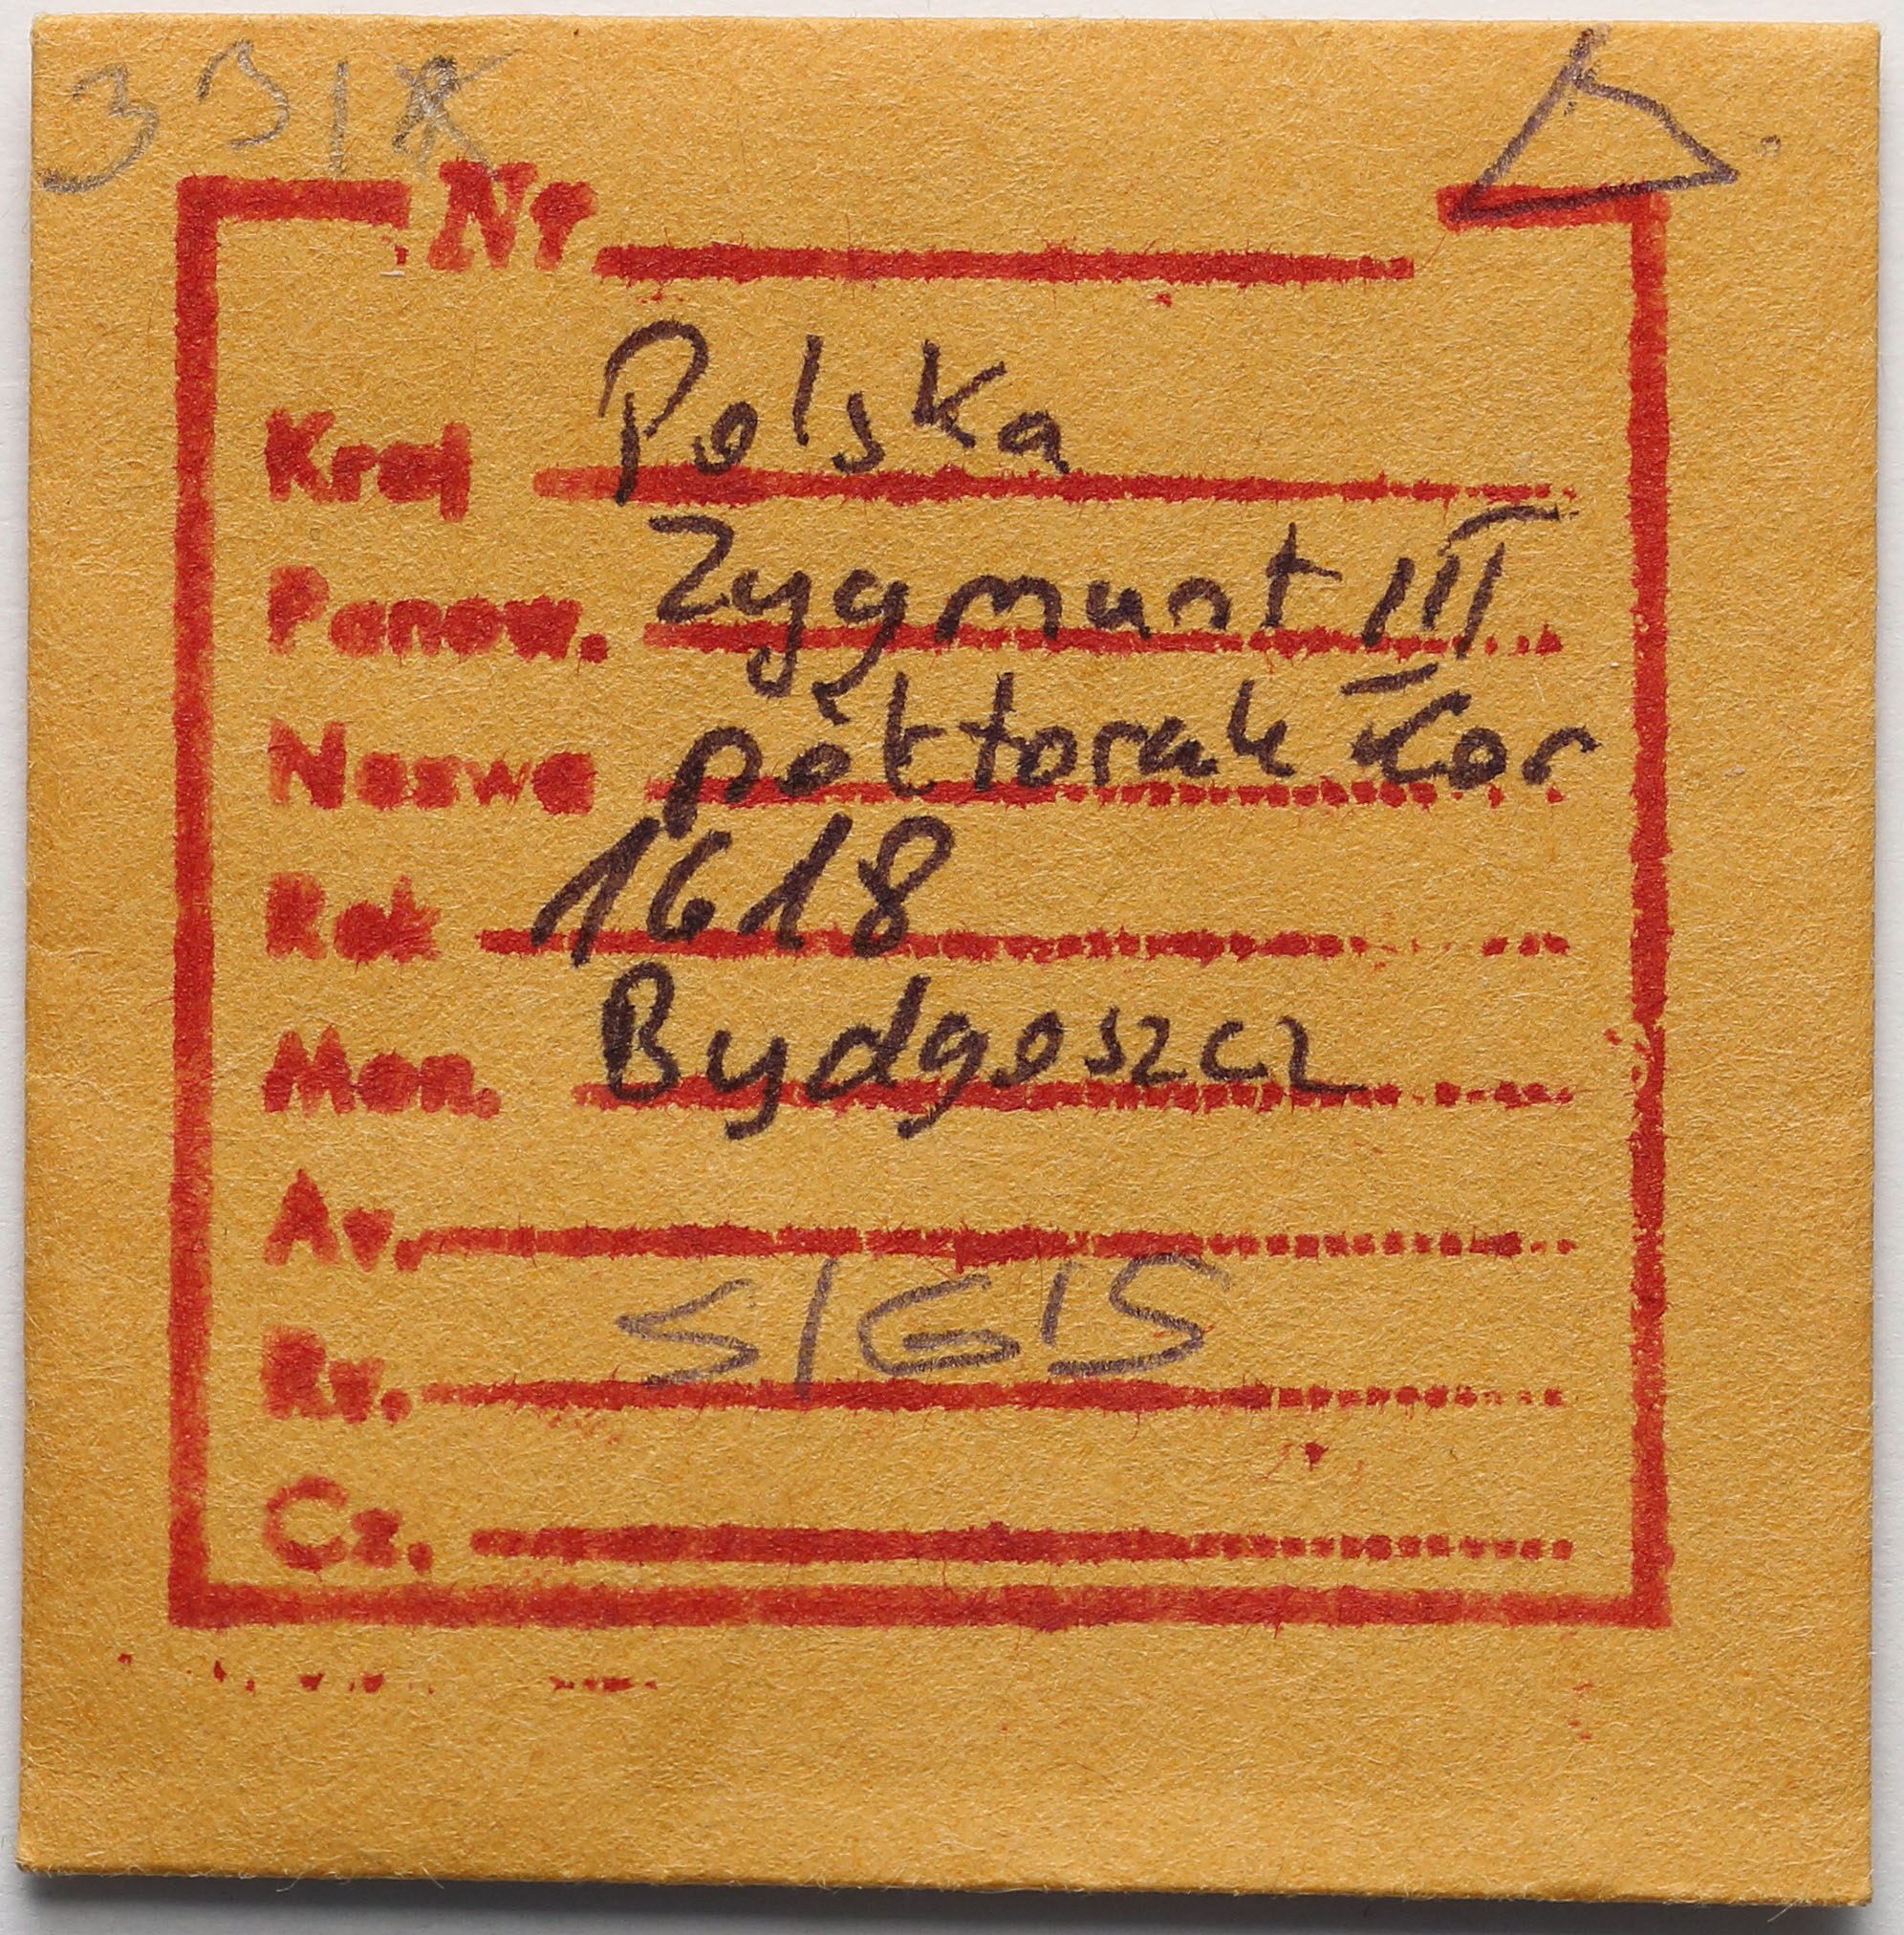 Nr
Kraj Polska
Panow. Zygmunt III
Nazwa półtorak Kor
Rok 1618
Men. Bydgoszcz
Av.
Rv. SIGIS
Cz.